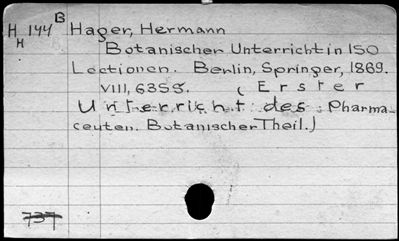 B
H 144 Hager, Hermann
H
Botanischer Unterricht in 150
Lectionen. Berlin, Springer, 1869.
VIII, 635 S. (Erster
Unterricht des Pharma-
ceuten. Botanischer Theil.)
737